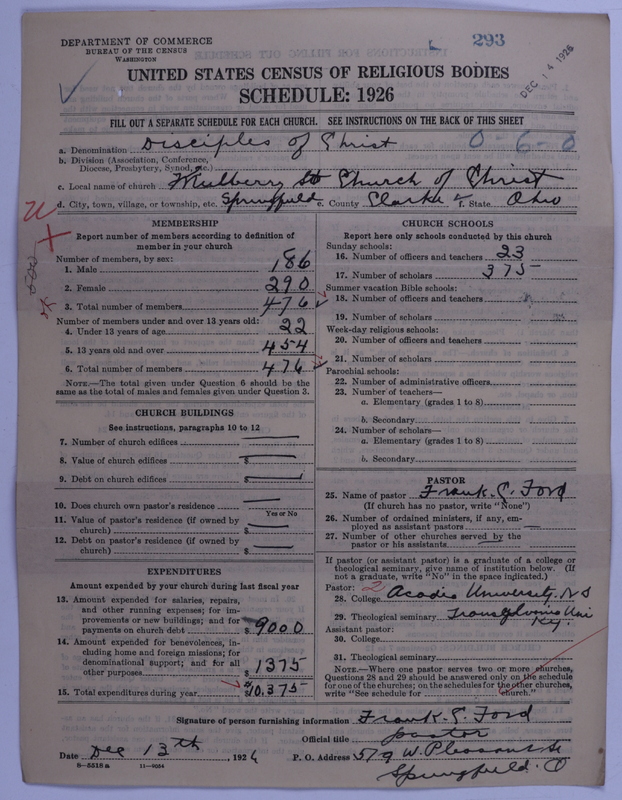 DEPARTMENT OF COMMERCE
BUREAU OF THE CENSUS
WASHINGTON
293
DEC 14 1926
UNITED STATES CENSUS OF RELIGIOUS BODIES
SCHEDULE: 1926
FILL OUT A SEPARATE SCHEDULE FOR EACH CHURCH. SEE INSTRUCTIONS ON THE BACK OF THIS SHEET
a. Denomination Disciples of Christ 0-6-0
b. Division (Association, Conference,
Diocese, Presbytery, Synod, etc.)
c. Local name of church Mulberry St Church of Christ
d. City, town, village, or township, etc. Springfield e. County Clarke f. State Ohio
MEMBERSHIP
Report number of members according to definition of
member in your church
Number of members, by sex:
1. Male 186
2. Female 290
3. Total number of members 476
Number of members under and over 13 years old:
4. Under 13 years of age 22
5. 13 years old and over 454
6. Total number of members 476
NOTE.—The total given under Question 6 should be the
same as the total of males and females given under Question 3.
CHURCH BUILDINGS
See instructions, paragraphs 10 to 12
7. Number of church edifices
8. Value of church edifices $
9. Debt on church edifices $
10. Does church own pastor's residence
Yes or No
11. Value of pastor's residence (if owned by
church) $
12. Debt on pastor's residence (if owned by
church) $
EXPENDITURES
Amount expended by your church during last fiscal year
13. Amount expended for salaries, repairs,
and other running expenses; for im-
provements or new buildings; and for
payments on church debt 9000
14. Amount expended for benevolences, in-
cluding home and foreign missions; for
denominational support; and for all
other purposes 1375
15. Total expenditures during year $10,375
CHURCH SCHOOLS
Report here only schools conducted by this church
Sunday schools:
16. Number of officers and teachers 23
17. Number of scholars 375
Summer vacation Bible schools:
18. Number of officers and teachers
19. Number of scholars
Week-day religious schools:
20. Number of officers and teachers
21. Number of scholars
Parochial schools:
22. Number of administrative officers
23. Number of teachers—
a. Elementary (grades 1 to 8)
b. Secondary
24. Number of scholars—
a. Elementary (grades 1 to 8)
b. Secondary
PASTOR
25. Name of pastor Frank. E. Ford
(If church has no pastor, write "None")
26. Number of ordained ministers, if any, em-
ployed as assistant pastors
27. Number of other churches served by the
pastor or his assistants
If pastor (or assistant pastor) is a graduate of a college or
theological seminary, give name of institution below. (If
not a graduate, write "No" in the space indicated.)
Pastor: 2
28. College Acadia University, N S
29. Theological seminary Transylvania Uni
Ky.
Assistant pastor:
30. College
31. Theological seminary
NOTE.—Where one pastor serves two or more churches,
Questions 28 and 29 should be answered only on the schedule
for one of the churches; on the schedules for the other churches,
write "See schedule for church."
Signature of person furnishing information Frank. E. Ford
Official title pastor
Date Dec 13th, 1926 P. O. Address 579 W. Pleasant St
8-5518a 11-9064 Springfield. O